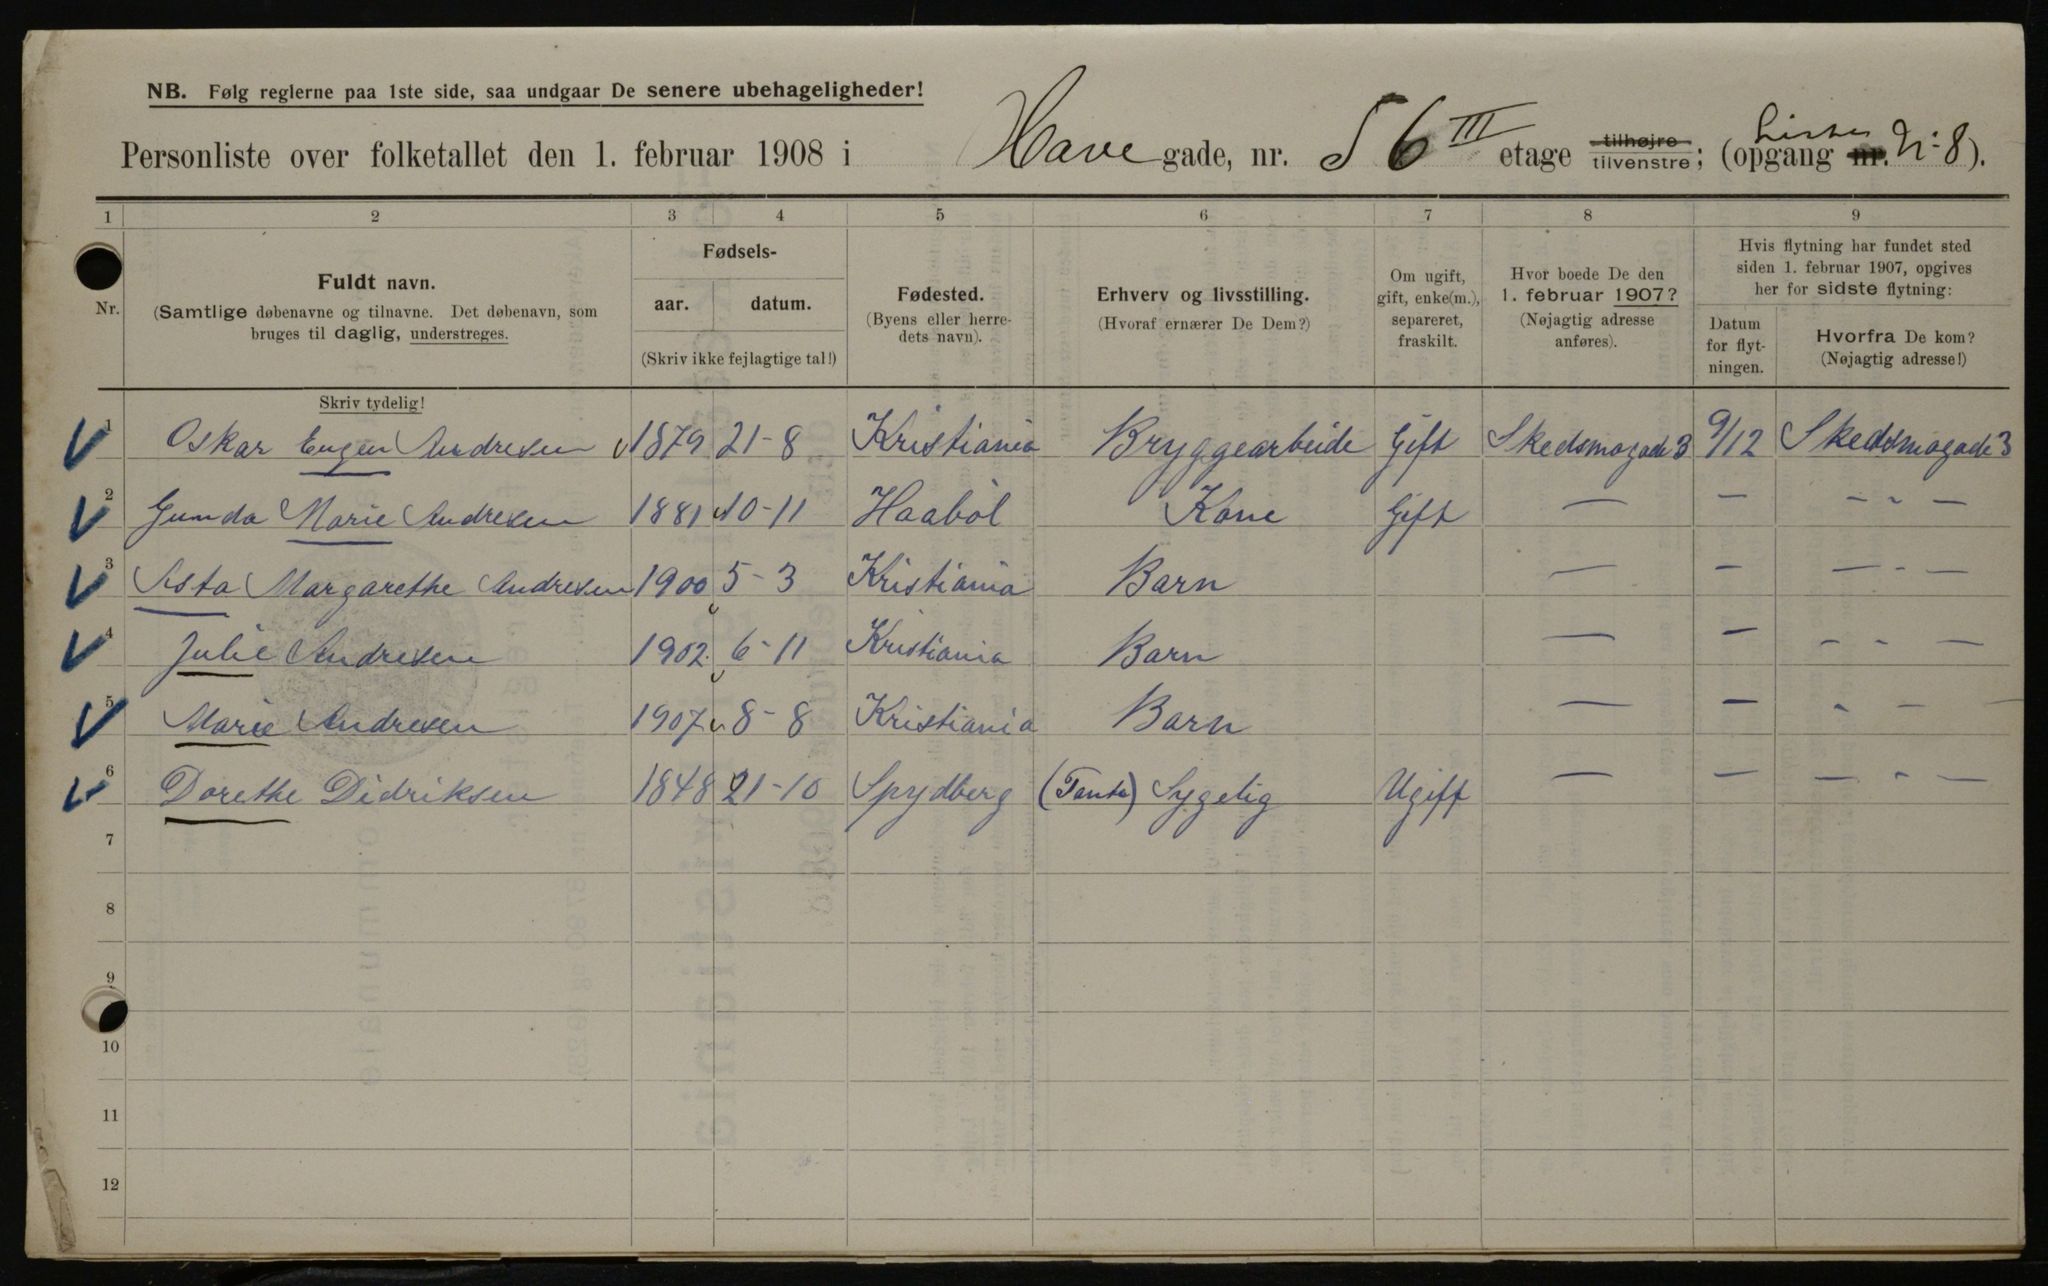 NB. Følg reglerne paa 1ste side, saa undgaar De senere ubehageligheder!
Personliste over folketallet den 1. februar 1908 i Have gade, nr. 56 III etage tilhøjre tilvenstre; (opgang nr. 8).
1 2 3 4 5 6 7 8 9
Nr.
Fuldt navn.
(Samtlige døbenavne og tilnavne. Det døbenavn, som
bruges til daglig, understreges.
Skriv tydelig!
Fødsels-
aar. datum.
(Skriv ikke fejlagtige tal!)
Fødested.
(Byens eller herre-
dets navn).
Erhverv og livsstilling.
(Hvoraf ernærer De Dem?)
Om ugift,
gift, enke(m.),
separeret,
fraskilt.
Hvor boede De den
1. februar 1907?
(Nøjagtig adresse
anføres).
Hvis flytning har fundet sted
siden 1. februar 1907, opgives
her for sidste flytning:
Datum
for flyt-
ningen.
Hvorfra De kom?
(Nøjagtig adresse!)
1 Oskar Eugen Andresen 1879 21-8 Kristiania Bryggearbeide Gift Skedsmogade 3 9/12 Skedsmogade 3
2 Gunda Marie Andresen 1881 10-11 Haaböl Kone Gift — — — " —
3 Asta Margarethe Andresen 1900 5-3 Kristiania Barn — — — " —
4 Julie Andresen 1902 6-11 Kristiania Barn — — — " —
5 Marie Andresen 1907 8-8 Kristiania Barn — — " — —
6 Dorethe Didriksen 1848 21-10 Spydberg (Tante) Sygelig Ugift — — — " —
7
8
9
10
11
12